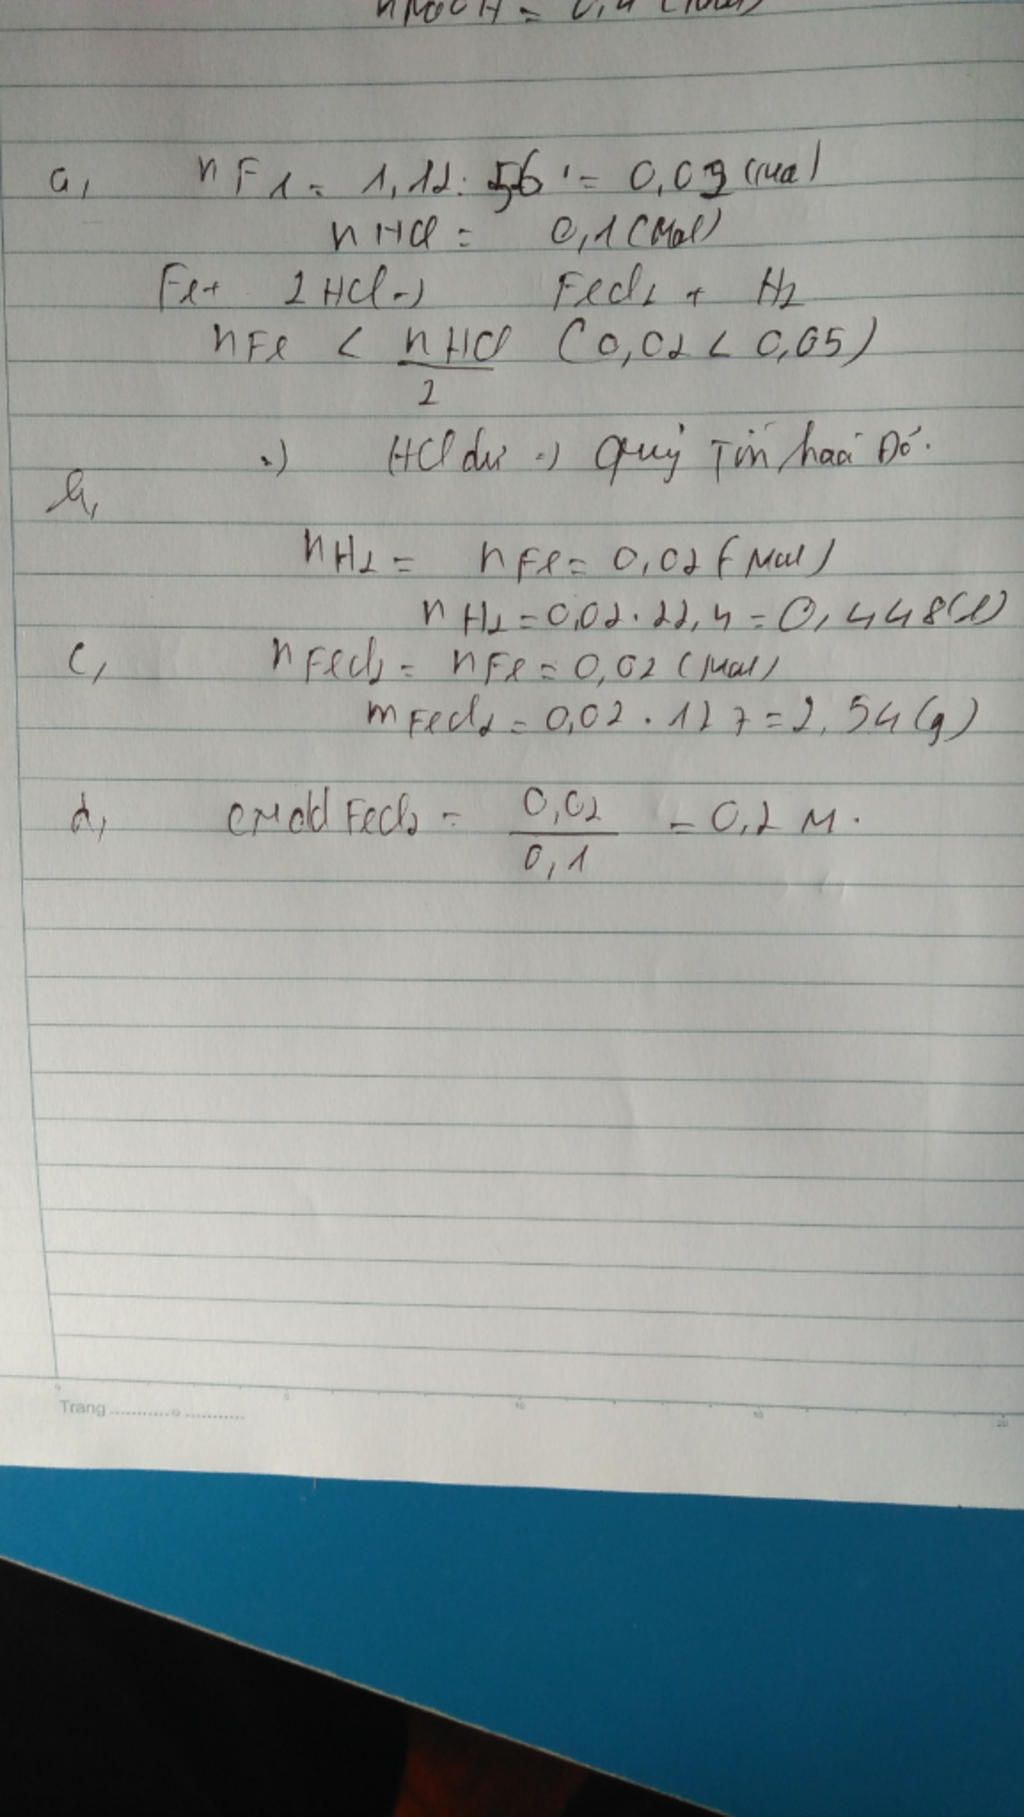 a, nFe = 1,12 : 56 = 0,02 (mol)
nHCl = 0,1 (mol)
Fe + 2HCl -> FeCl2 + H2
nFe < nHCl/2 (0,02 < 0,05)
=> HCl dư => Quỳ Tím hoá Đỏ.
b,
nH2 = nFe = 0,02 (mol)
nH2 = 0,02 . 22,4 = 0,448 (l)
c, nFeCl2 = nFe = 0,02 (mol)
mFeCl2 = 0,02 . 127 = 2,54 (g)
d, CMdd FeCl2 = 0,02/0,1 = 0,2 M.
Trang